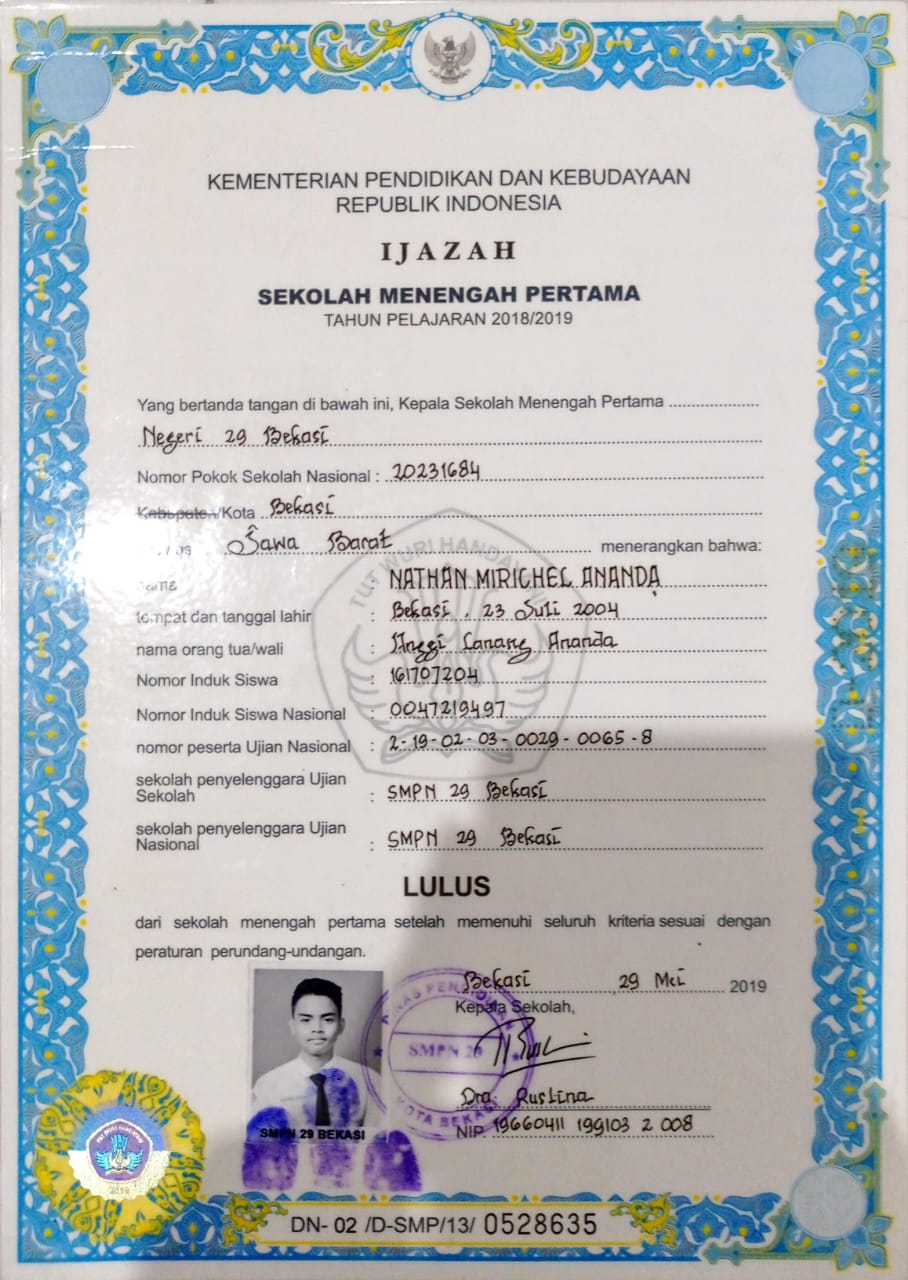 KEMENTERIAN PENDIDIKAN DAN KEBUDAYAAN
REPUBLIK INDONESIA
IJAZAH
SEKOLAH MENENGAH PERTAMA
TAHUN PELAJARAN 2018/2019
Yang bertanda tangan di bawah ini, Kepala Sekolah Menengah Pertama
Negeri 29 Bekasi
Nomor Pokok Sekolah Nasional : 20231684
Kabupaten/Kota Bekasi
Jawa Barat menerangkan bahwa:
nama : NATHAN MIRICHEL ANANDA
tempat dan tanggal lahir : Bekasi, 23 Juli 2004
nama orang tua/wali : Anggi Lanang Ananda
Nomor Induk Siswa : 161707204
Nomor Induk Siswa Nasional : 0047219497
nomor peserta Ujian Nasional : 2-19-02-03-0029-0065-8
sekolah penyelenggara Ujian
Sekolah : SMPN 29 Bekasi
sekolah penyelenggara Ujian
Nasional : SMPN 29 Bekasi
LULUS
dari sekolah menengah pertama setelah memenuhi seluruh kriteria sesuai dengan
peraturan perundang-undangan.
Bekasi 29 Mei 2019
Kepala Sekolah,
SMPN 29
KOTA BEKASI
Dra. Ruslina
NIP. 19660411 199103 2 008
SMPN 29 BEKASI
TUT WURI HANDAYANI
2019
DN- 02 /D-SMP/13/ 0528635